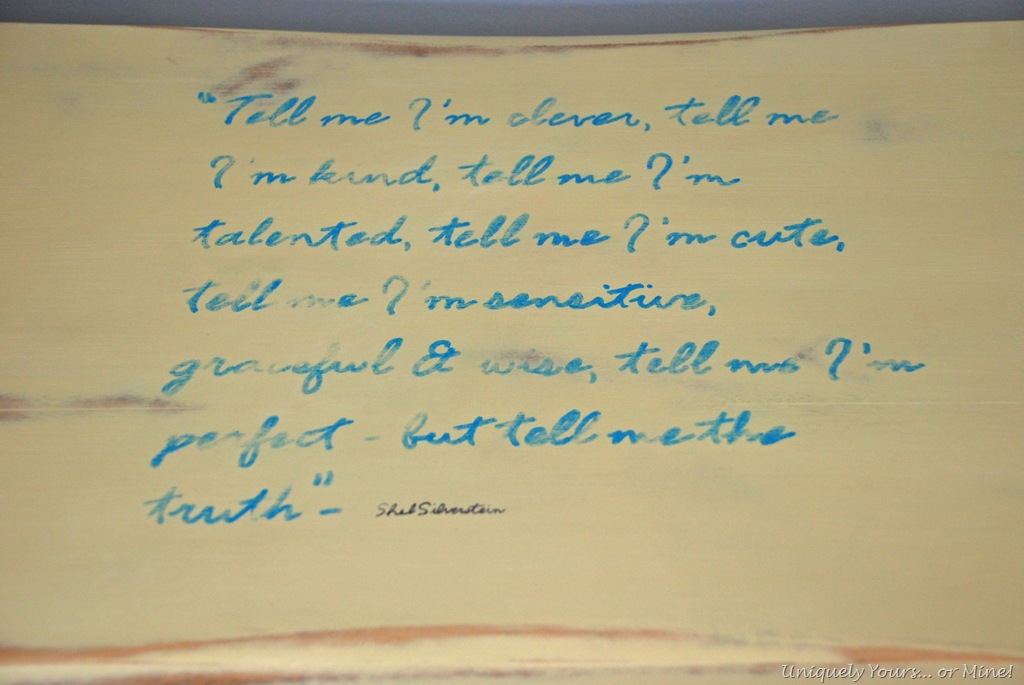 "Tell me I'm clever, tell me
I'm kind, tell me I'm
talented, tell me I'm cute,
tell me I'm sensitive,
graceful & wise, tell me I'm
perfect - but tell me the
truth" - Shel Silverstein
Uniquely Yours... or Mine!